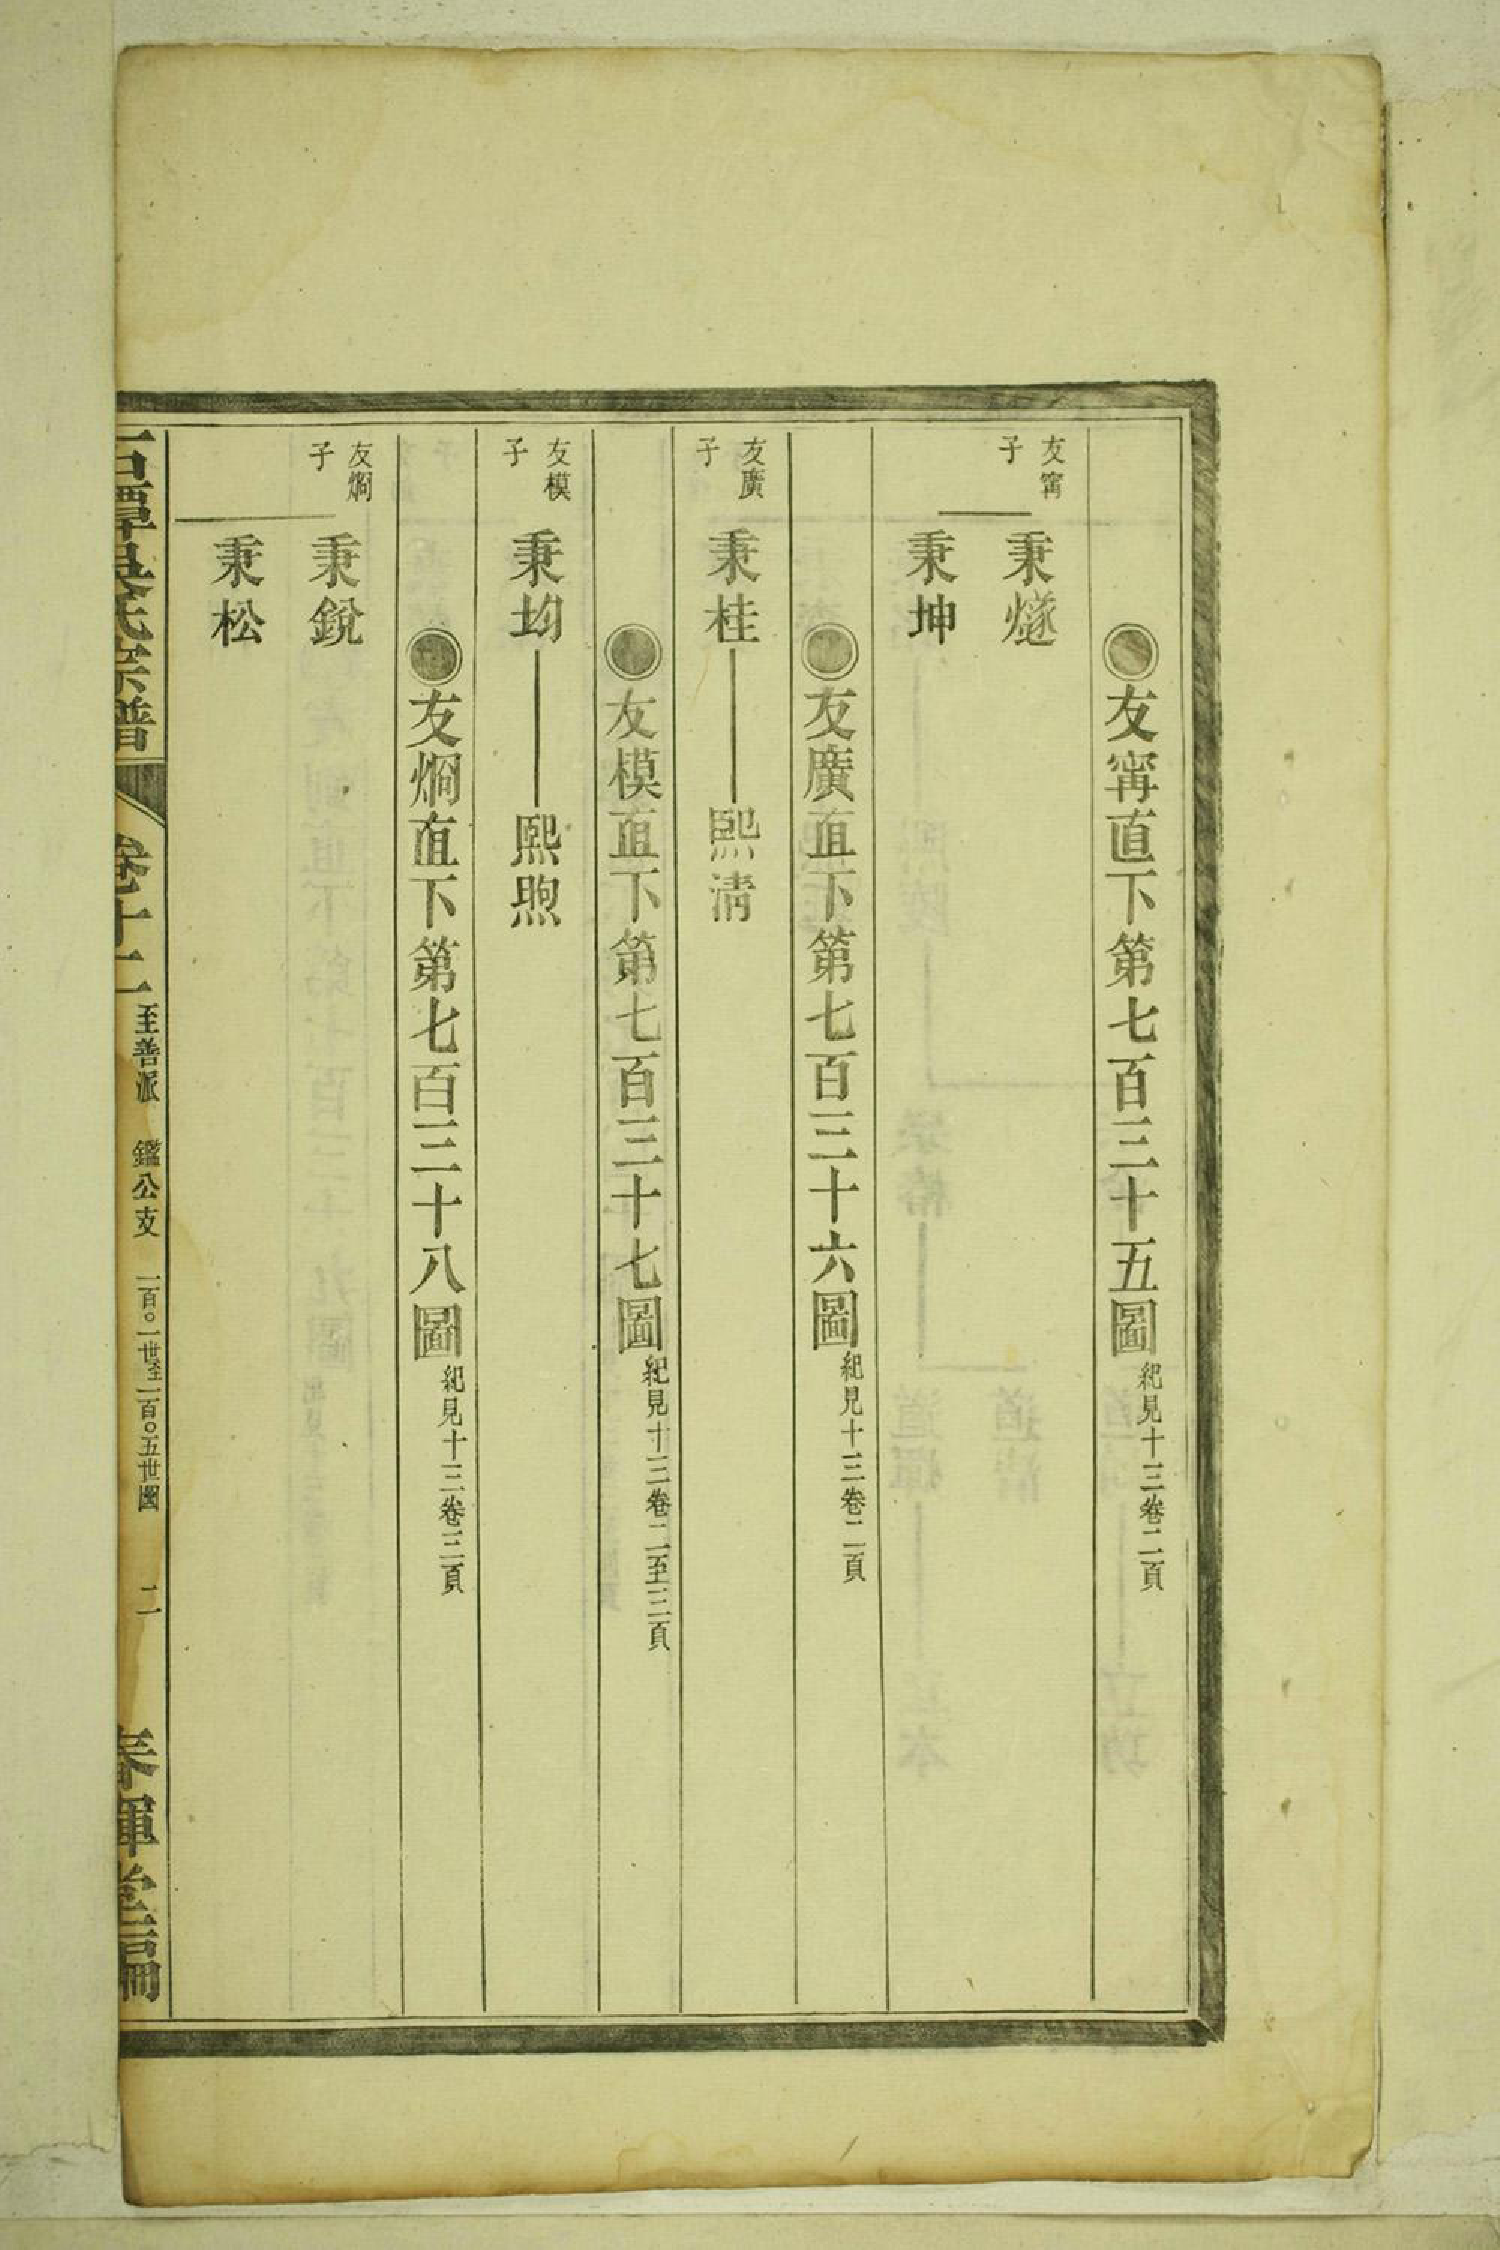 友寗直下第七百三十五圖 紀見十三卷二頁
友寗子
秉燧
秉坤
友廣直下第七百三十六圖 紀見十三卷二頁
友廣子
秉桂 熙清
友模直下第七百三十七圖 紀見十三卷二至三頁
友模子
秉均 熙煦
友燗直下第七百三十八圖 紀見十三卷三頁
友燗子
秉銳
秉松
石潭吳氏宗譜 卷十二 至善派 鑑公支 一百〇一世至一百〇五世圖 二 春暉堂編